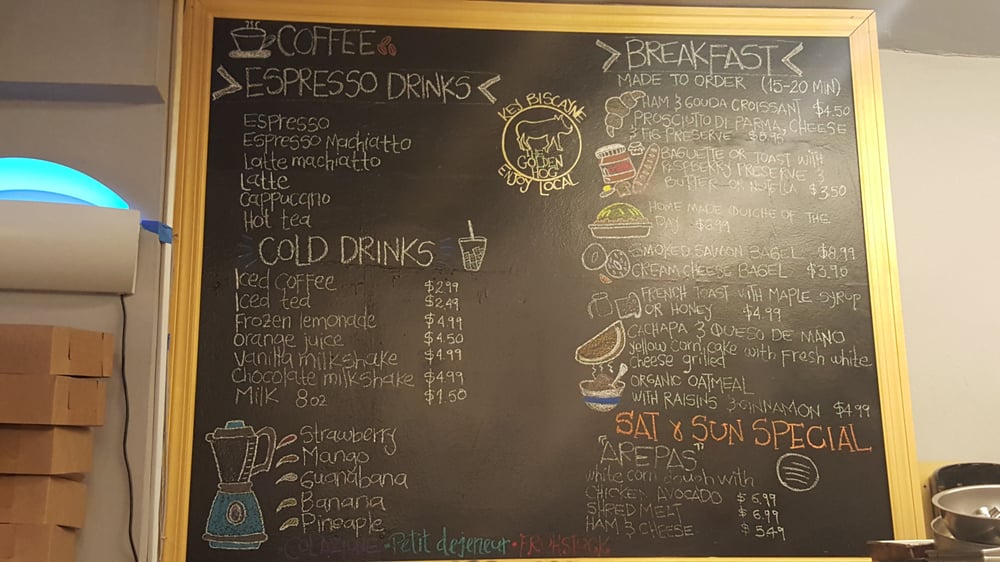 COFFEE
ESPRESSO DRINKS
Espresso
Espresso Machiatto
Latte machiatto
Latte
Cappuccino
Hot tea
COLD DRINKS
Iced coffee $2.99
Iced tea $2.49
Frozen lemonade $4.99
orange juice $4.50
vanilla milkshake $4.99
Chocolate milkshake $4.99
Milk 8oz $1.50
Strawberry
Mango
Guanábana
Banana
Pineaple
KEY BISCAYNE
THE
GOLDEN
HOG
ENJOY LOCAL
BREAKFAST
MADE TO ORDER (15-20 MIN)
HAM & GOUDA CROISSANT $4.50
PROSCIUTTO DI PARMA, CHEESE
& FIG PRESERVE
BAGUETTE OR TOAST WITH
RASPBERRY PRESERVE &
BUTTER OR NUTELLA $3.50
HOME MADE QUICHE OF THE
DAY
SMOKED SALMON BAGEL $8.99
CREAM CHEESE BAGEL $3.90
FRENCH TOAST WITH MAPLE SYRUP
OR HONEY $4.99
CACHAPA & QUESO DE MANO
yellow corn cake with fresh white
cheese grilled
ORGANIC OATMEAL
WITH RAISINS & CINNAMON $4.99
SAT & SUN SPECIAL
"AREPAS"
white corn dough with
CHICKEN AVOCADO $6.99
SHRED MELT $6.99
HAM & CHEESE $5.49
COLAZIONE • Petit dejeneur • FRUHSTUCK